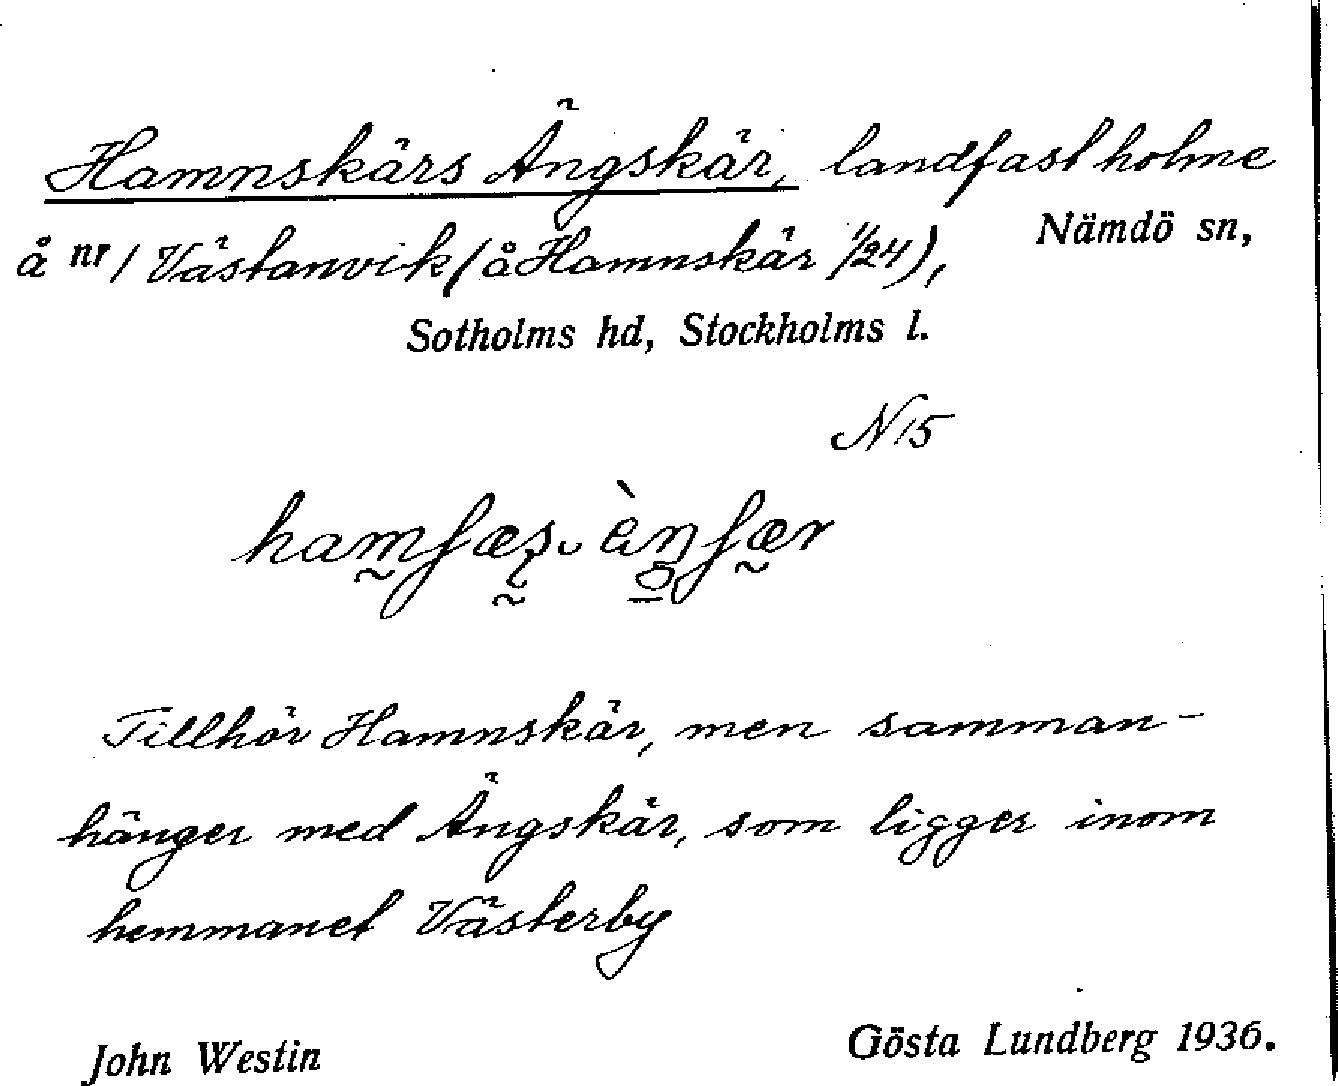 Hamnskärs Ängskär, landfast holme
å nr 1 Västanvik (å Hamnskär 1/24), Nämdö sn,
Sotholms hd, Stockholms l.
N 15
Tillhör Hamnskär, men samman-
hänger med Ängskär, som ligger inom
hemmanet Västerby
John Westin Gösta Lundberg 1936.